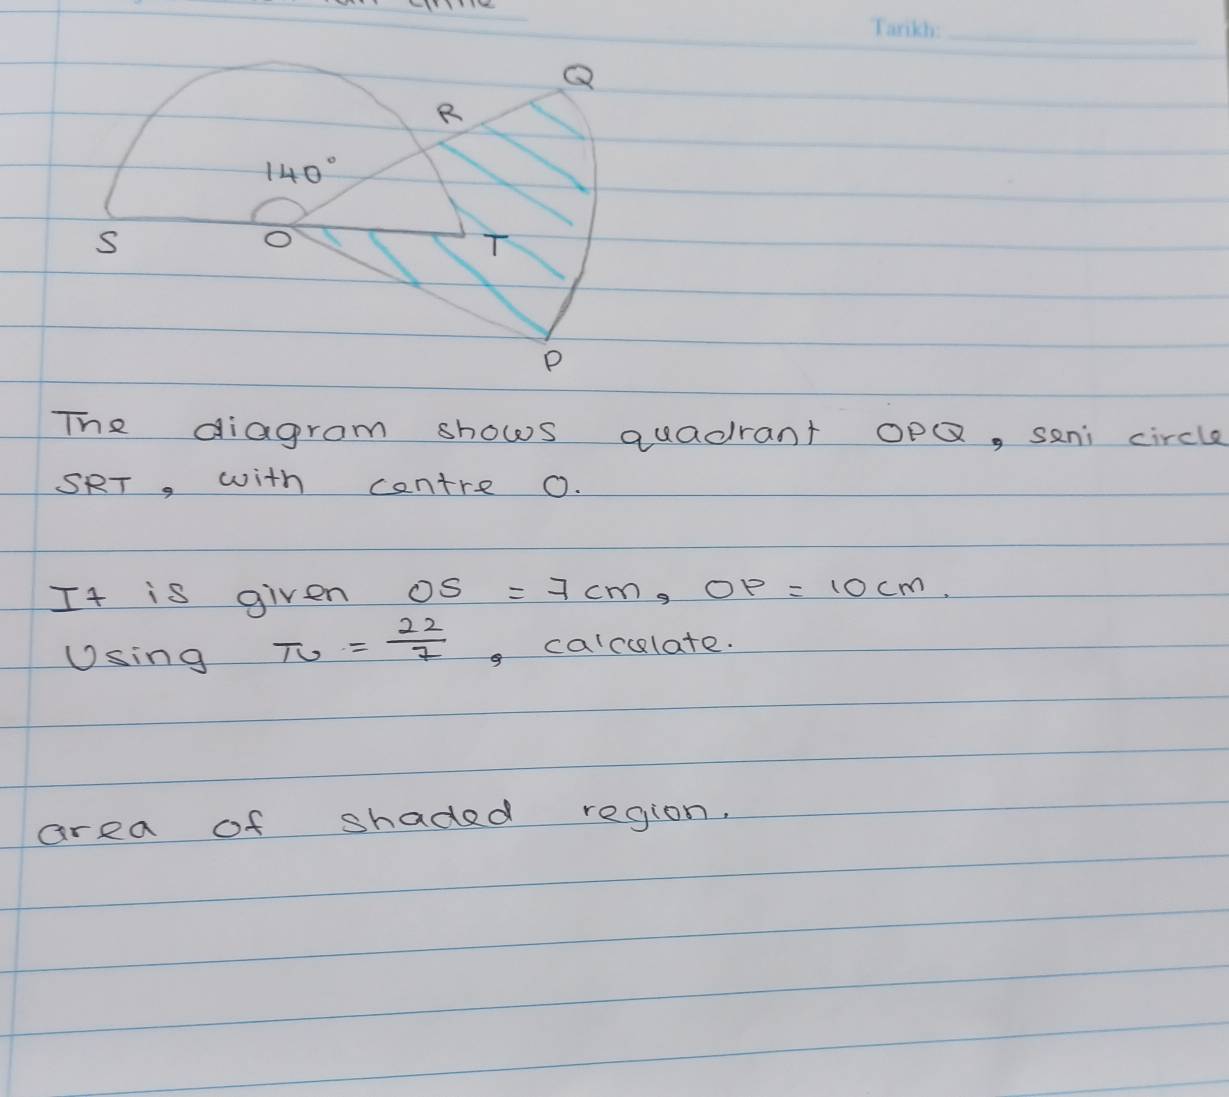 Tarikh:
Q
R
140°
S
O
T
P
The diagram shows quadrant OPQ, seni circle
SRT, with centre O.
It is given OS = 7cm, OP = 10cm.
Using π = 22/7, calculate.
area of shaded region.